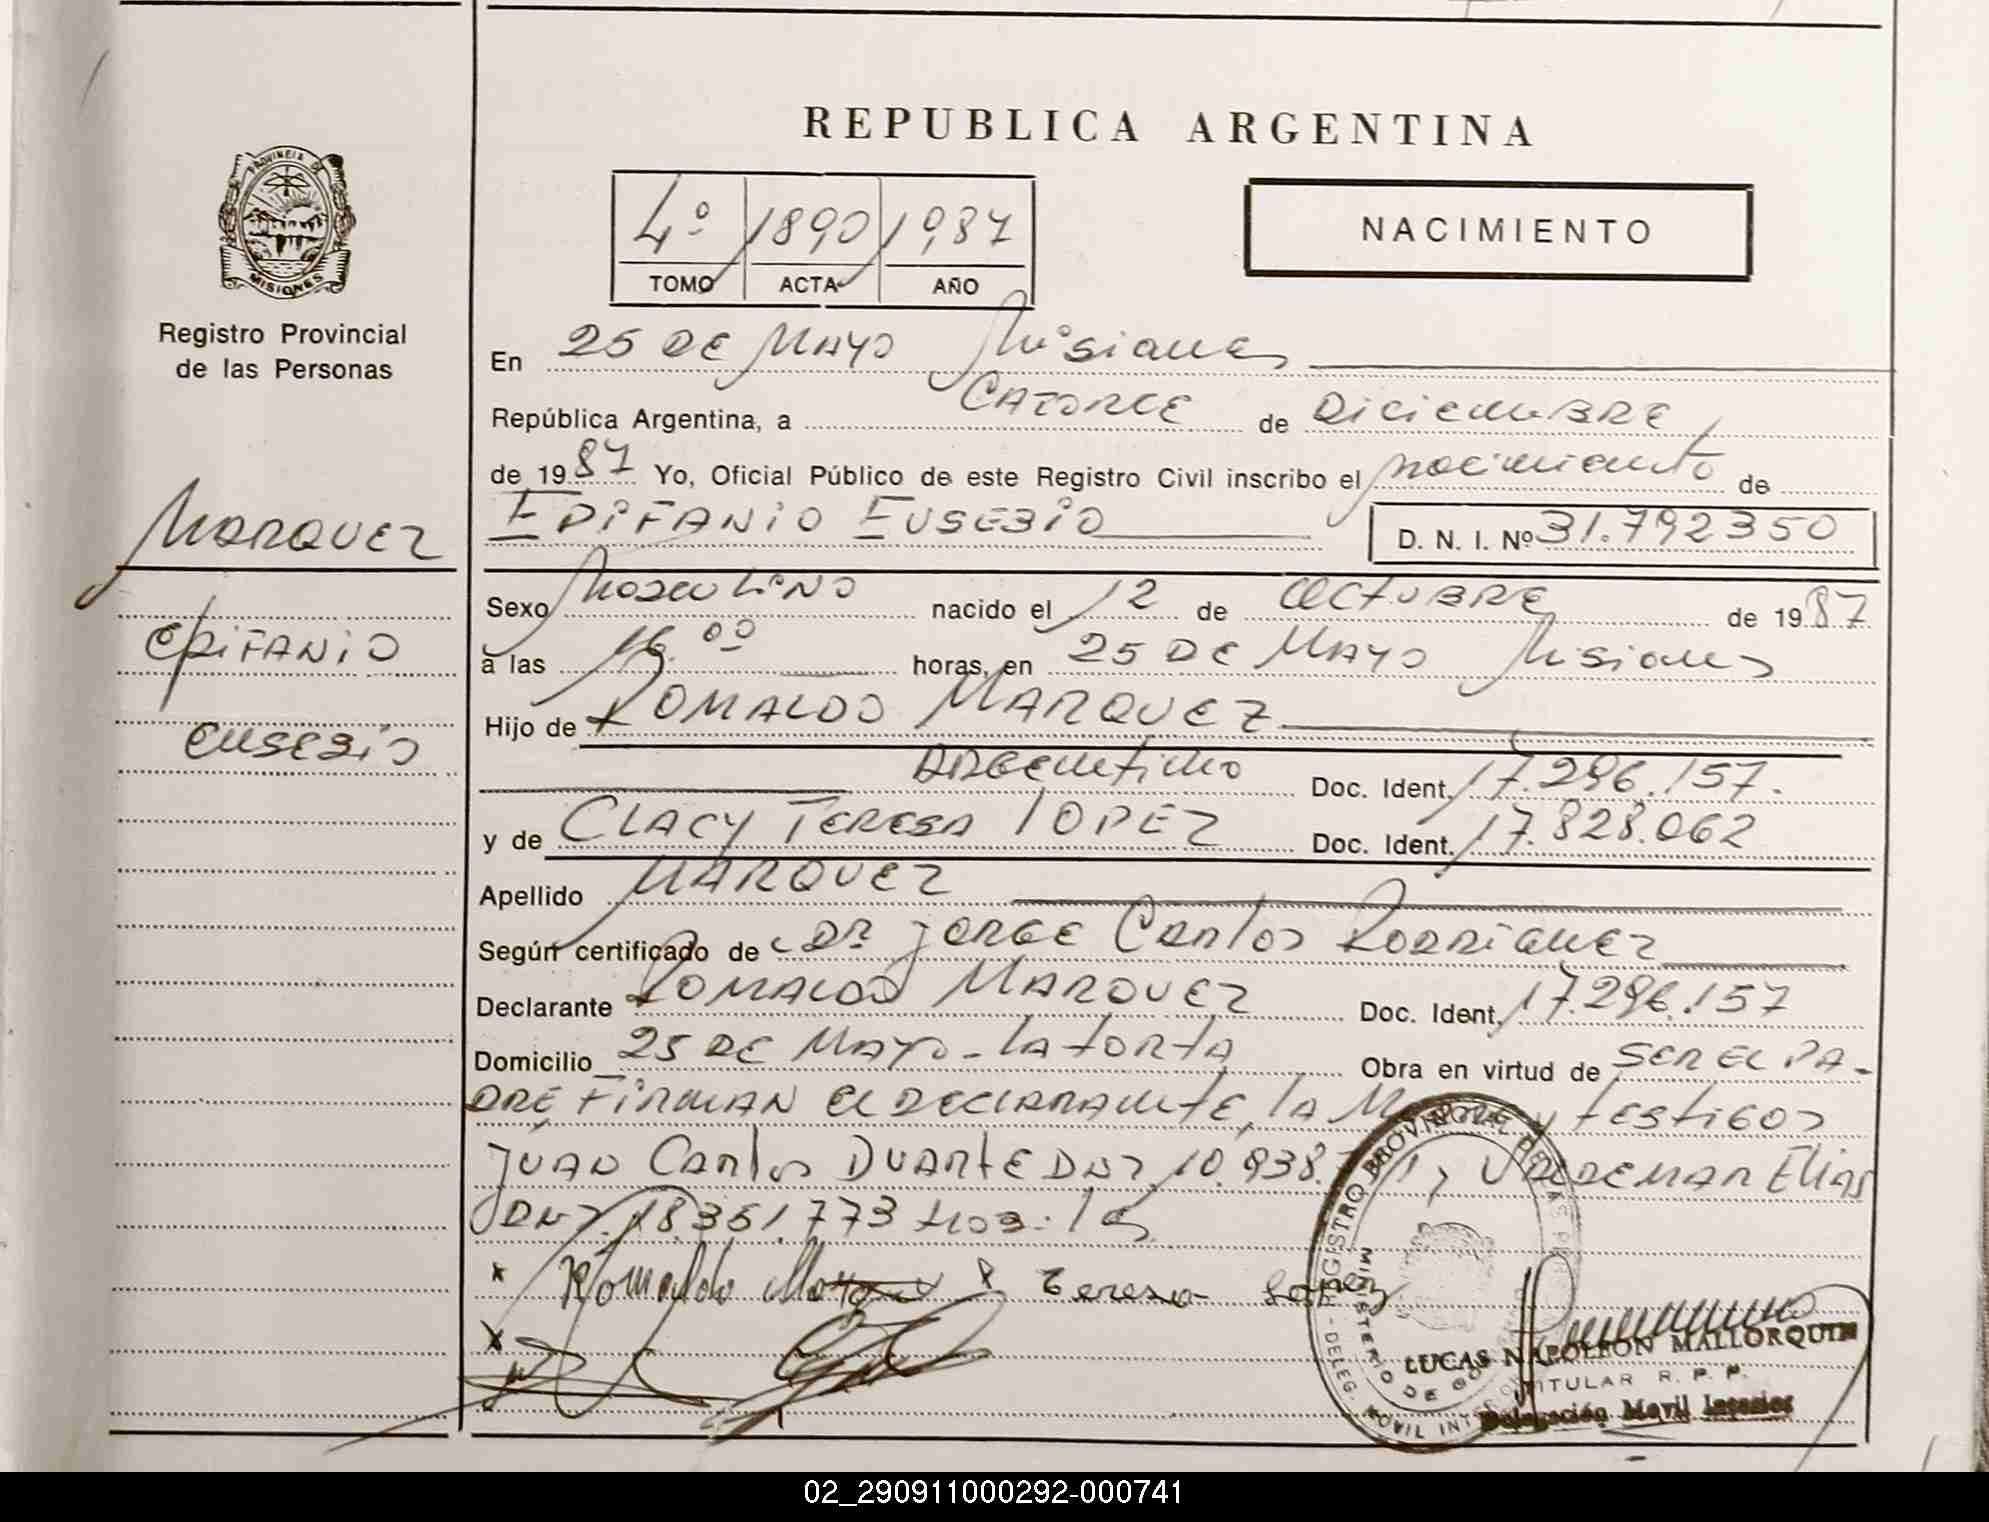 REPUBLICA ARGENTINA
PROVINCIA DE
MISIONES
Registro Provincial
de las Personas
4º 1890 1987
TOMO ACTA AÑO
NACIMIENTO
En 25 DE MAYO Misiones
República Argentina, a CATORCE de DICIEMBRE
de 1987 Yo, Oficial Público de este Registro Civil inscribo el nacimiento de
MARQUEZ
EPIFANIO EUSEBIO
D. N. I. Nº 31.792350
Sexo MASCULINO nacido el 12 de OCTUBRE de 1987
EPIFANIO
a las 16.00 horas, en 25 DE MAYO Misiones
Hijo de ROMALDO MARQUEZ
EUSEBIO
ARGENTINO Doc. Ident. 17.296.157.
y de CLACY TERESA LOPEZ Doc. Ident. 17.828.062
Apellido MARQUEZ
Según certificado de DR JORGE Carlos RODRIGUEZ
Declarante ROMALDO MARQUEZ Doc. Ident. 17.296.157
Domicilio 25 DE MAYO - LA TORTA Obra en virtud de SER EL PA-
DRE FIRMAN EL DECLARANTE, LA MADRE y TESTIGOS
JUAN Carlos DUARTE DNI 10.938. y VALDEMAR ELIAS
DNI 18.351.773
x Romaldo Marquez x Teresa Lopez
x
REGISTRO PROVINCIAL DE LAS PERSONAS
MINISTERIO DE GOBIERNO
DELEG. MOVIL INTERIOR
LUCAS NAPOLEON MALLORQUIN
TITULAR R. P. P.
Delegación Movil Interior
02_290911000292-000741